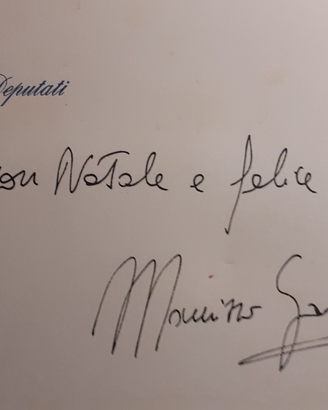 Deputati
on Natale e felice
Maurizio Ga